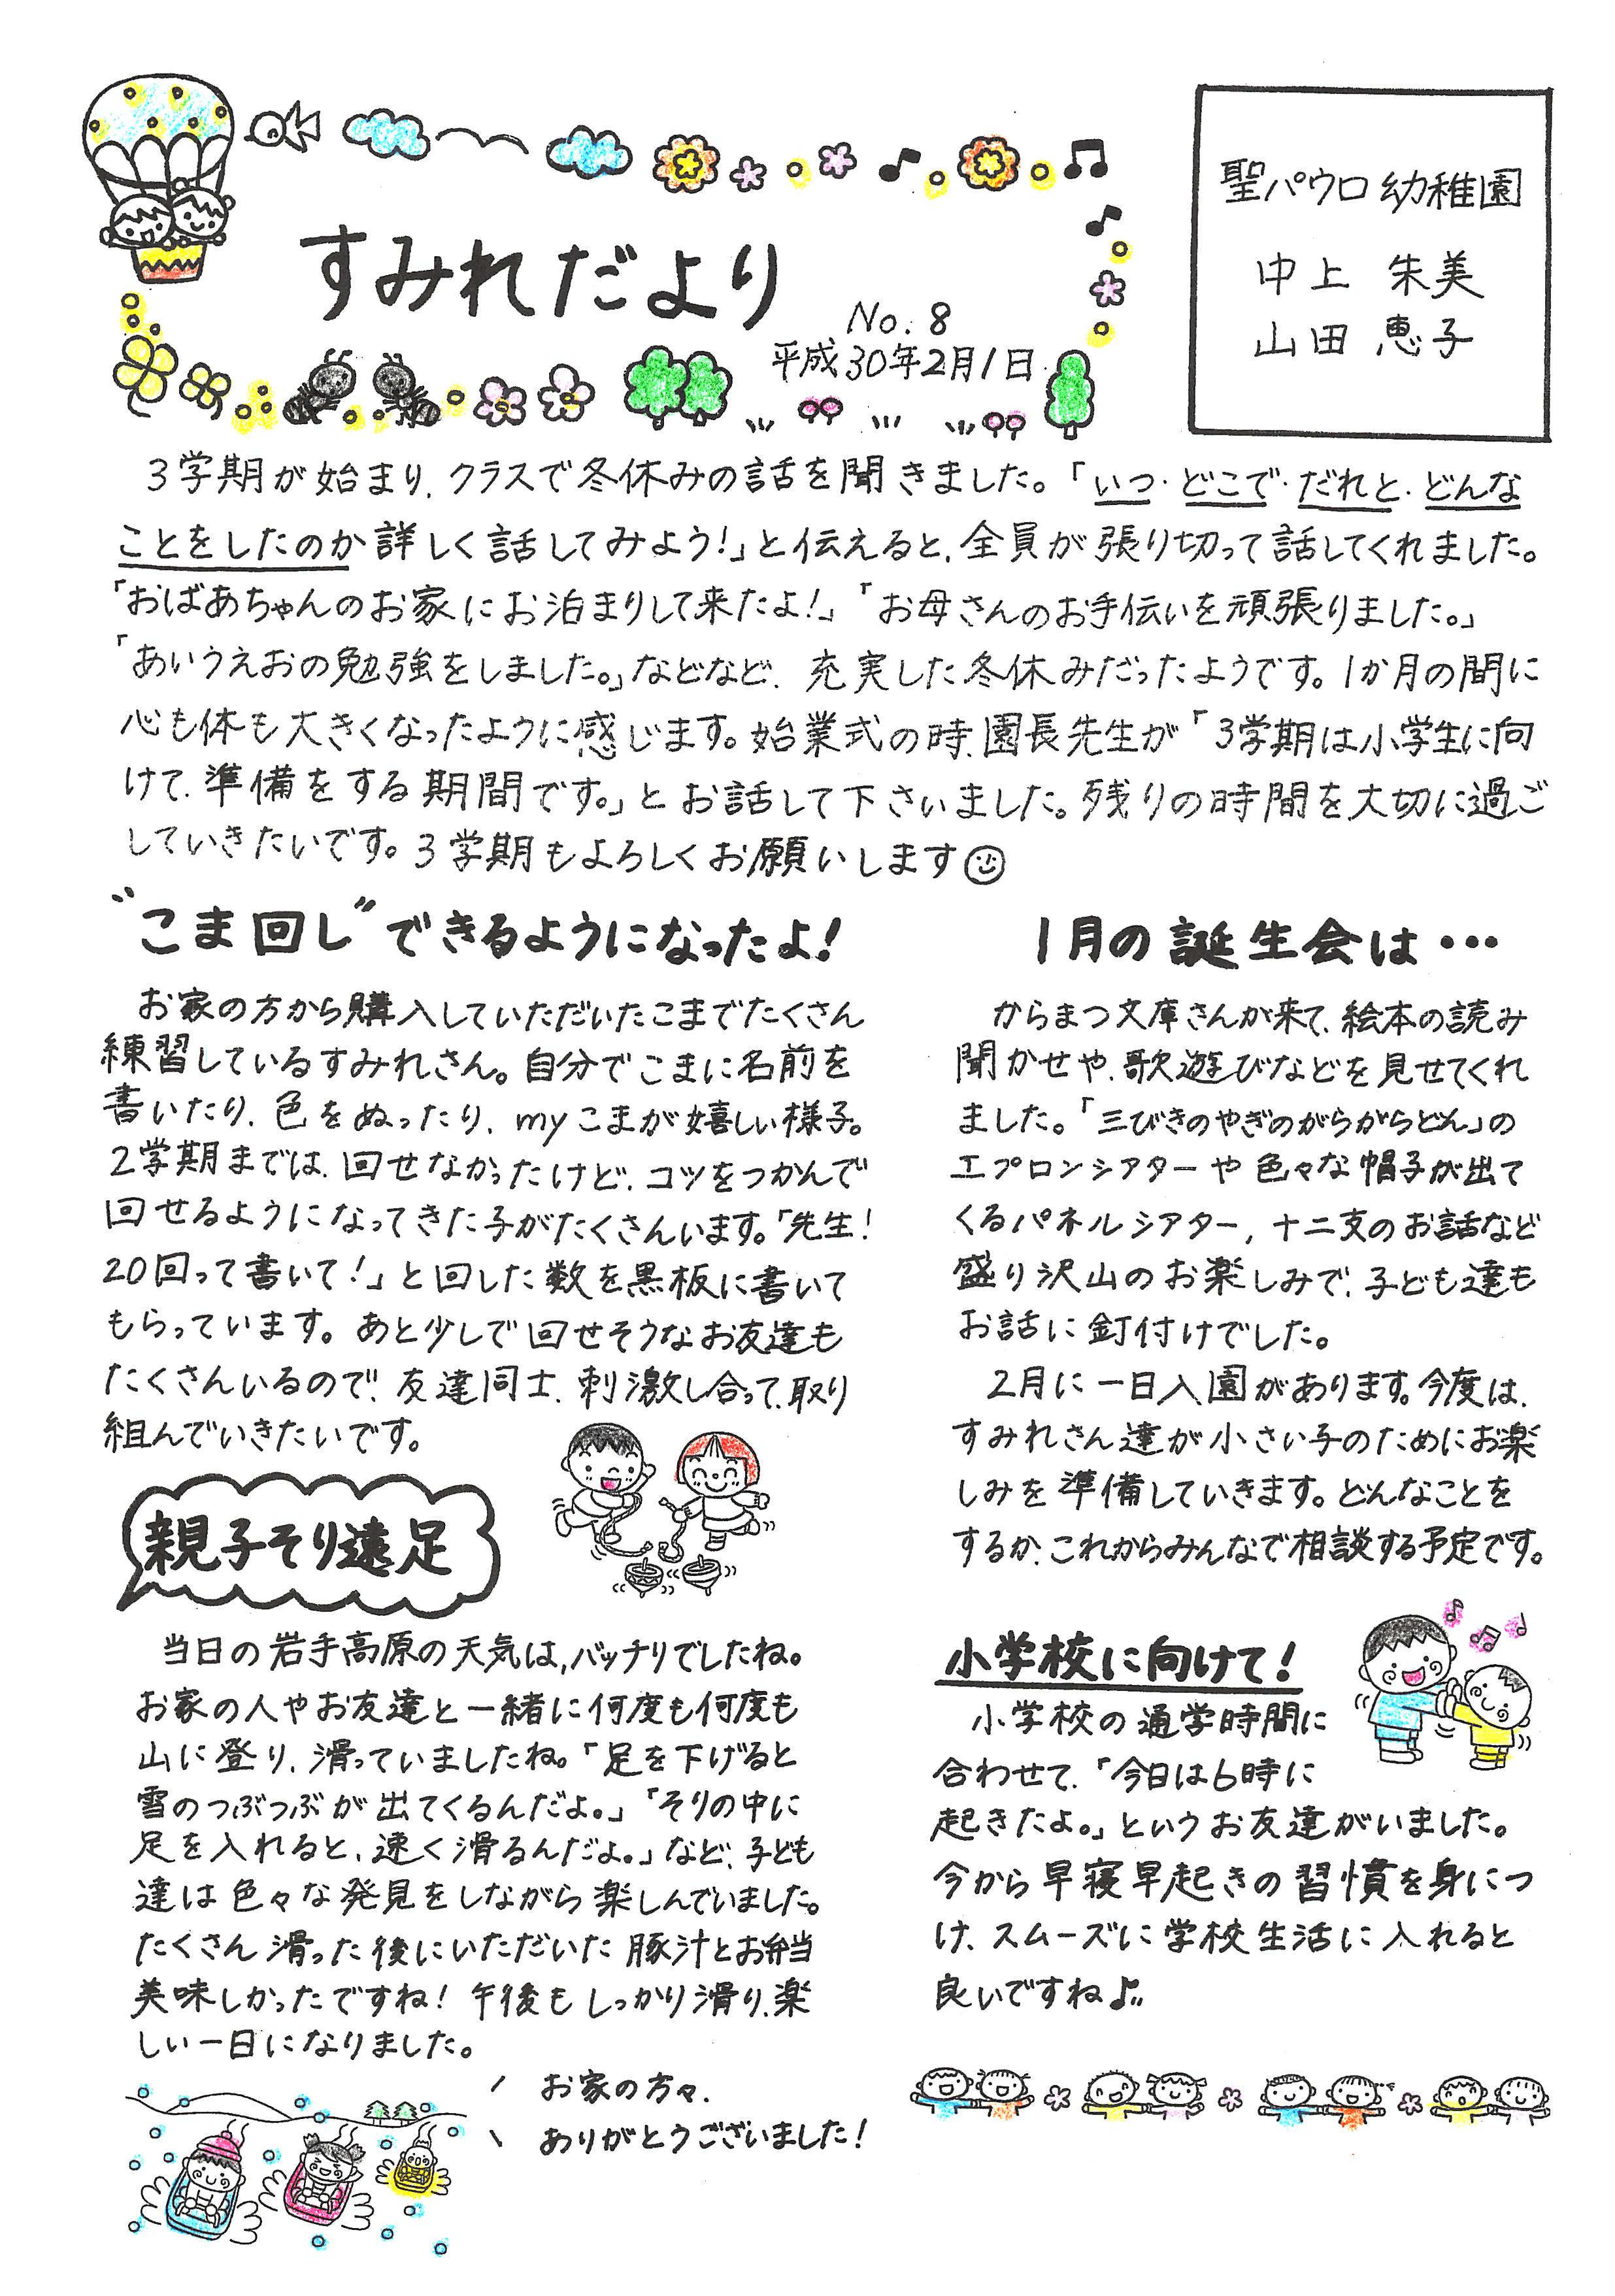 すみれだより
No.8
平成30年2月1日
聖パウロ幼稚園
中上 朱美
山田 恵子
3学期が始まり、クラスで冬休みの話を聞きました。「いつ・どこで・だれと・どんな
ことをしたのか詳しく話してみよう!」と伝えると、全員が張り切って話してくれました。
「おばあちゃんのお家にお泊まりして来たよ!」「お母さんのお手伝いを頑張りました。」
「あいうえおの勉強をしました。」などなど、充実した冬休みだったようです。1か月の間に
心も体も大きくなったように感じます。始業式の時、園長先生が「3学期は小学生に向
けて、準備をする期間です。」とお話して下さいました。残りの時間を大切に過ご
していきたいです。3学期もよろしくお願いします☺
"こま回し"できるようになったよ!
お家の方から購入していただいたこまでたくさん
練習しているすみれさん。自分でこまに名前を
書いたり、色をぬったり、myこまが嬉しい様子。
2学期までは、回せなかったけど、コツをつかんで
回せるようになってきた子がたくさんいます。「先生!
20回って書いて!」と回した数を黒板に書いて
もらっています。あと少しで回せそうなお友達も
たくさんいるので、友達同士、刺激し合って、取り
組んでいきたいです。
親子そり遠足
当日の岩手高原の天気は、バッチリでしたね。
お家の人やお友達と一緒に何度も何度も
山に登り、滑っていましたね。「足を下げると
雪のつぶつぶが出てくるんだよ。」「そりの中に
足を入れると、速く滑るんだよ。」など、子ども
達は色々な発見をしながら楽しんでいました。
たくさん滑った後にいただいた豚汁とお弁当
美味しかったですね!午後もしっかり滑り、楽
しい一日になりました。
お家の方々、
ありがとうございました!
1月の誕生会は・・・
からまつ文庫さんが来て、絵本の読み
聞かせや、歌遊びなどを見せてくれ
ました。「三びきのやぎのがらがらどん」の
エプロンシアターや色々な帽子が出て
くるパネルシアター,十二支のお話など
盛り沢山のお楽しみで、子ども達も
お話に釘付けでした。
2月に一日入園があります。今度は、
すみれさん達が小さい子のためにお楽
しみを準備していきます。どんなことを
するか、これからみんなで相談する予定です。
小学校に向けて!
小学校の通学時間に
合わせて、「今日は6時に
起きたよ。」というお友達がいました。
今から早寝早起きの習慣を身につ
け、スムーズに学校生活に入れると
良いですね♪